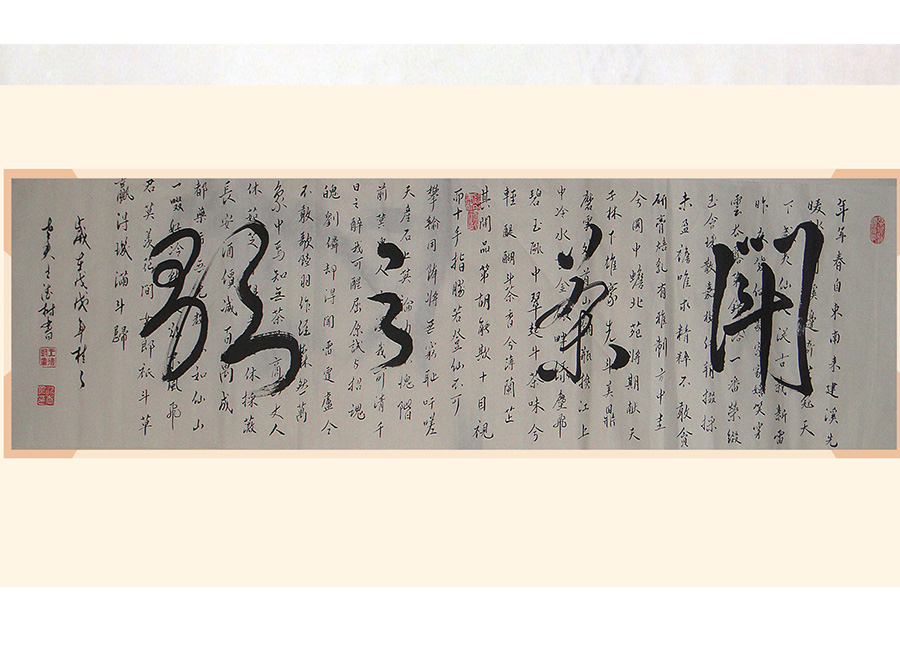 鬥茶之歌
年年春自東南来建溪先
暖冰開溪邊奇冠天
下武夷仙人從古栽新雷
昨夜嬉笑穿
雲去一番榮綴
玉含珠散嘉樹終朝採掇
未盈襜唯求精粹不敢貪
研膏焙乳有雅製方中圭
兮圓中蟾北苑將期献天
子林下雄豪先斗美鼎
磨雲外首山銅瓶携江上
中冷水黃金塵飛
碧玉甌中翠起斗茶味兮
輕醍醐斗茶香兮薄蘭芷
其間品第胡能欺十目視
而十手指勝若登仙不可
攀輸同降將無窮恥吁嗟
天産石上英論功不愧階
前蓂人我可清千
日之醉我可醒屈原試与招魂
魄劉伶却得聞雷霆盧仝
不敢歌陸羽作經森然萬
象中焉知無茶商山丈人
休茹芝休採薇
長安酒價减百萬成
都藥市無如仙山
一啜好泠風飛
君莫羨花間女郎祇斗草
贏得璣滿斗歸
歲在戊戌年桂月